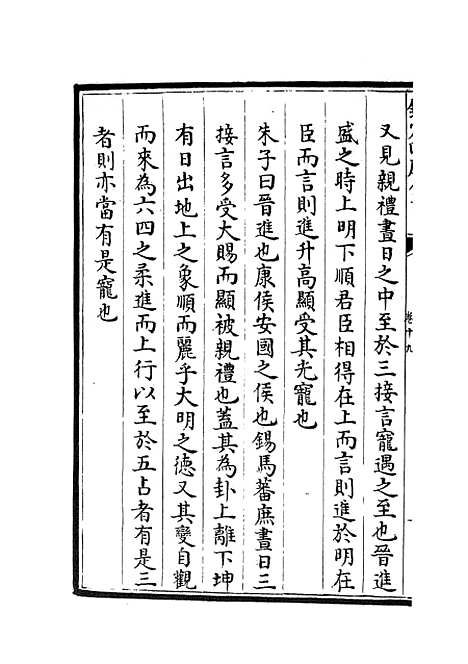 又見親禮晝日之中至於三接言寵遇之至也晉進
盛之時上明下順君臣相得在上而言則進於明在
臣而言則進升高顯受其光寵也
朱子曰晉進也康侯安國之侯也錫馬蕃庶晝日三
接言多受大賜而顯被親禮也蓋其為卦上離下坤
有日出地上之象順而麗乎大明之德又其變自觀
而來為六四之柔進而上行以至於五占者有是三
者則亦當有是寵也
卷十九